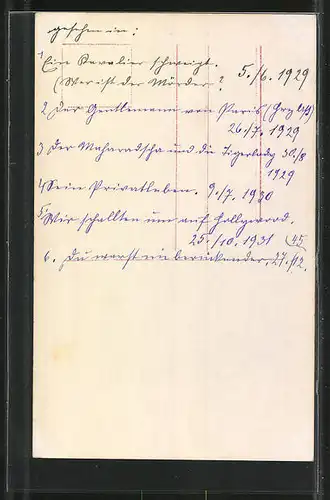 gesehen in:
1 Ein Kavalier schweigt.
(Wer ist der Mörder? 5./6. 1929
2 Der Gentleman von Paris (
26./7. 1929
3 Der Maharadscha und die Tigerlady 30./8
1929
4 Sein Privatleben. 9./7. 1930
5 Wir schalten um auf Hollywood.
25./10. 1931 (45
6. Du warst nie berückender, 27./12.